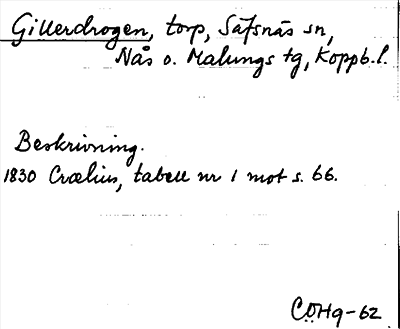 Gillerdrogen, torp, Säfsnäs sn,
Nås o. Malungs tg, Koppb.l.
Beskrivning.
1830 Crælius, tabell nr 1 mot s. 66.
CÖHg-62